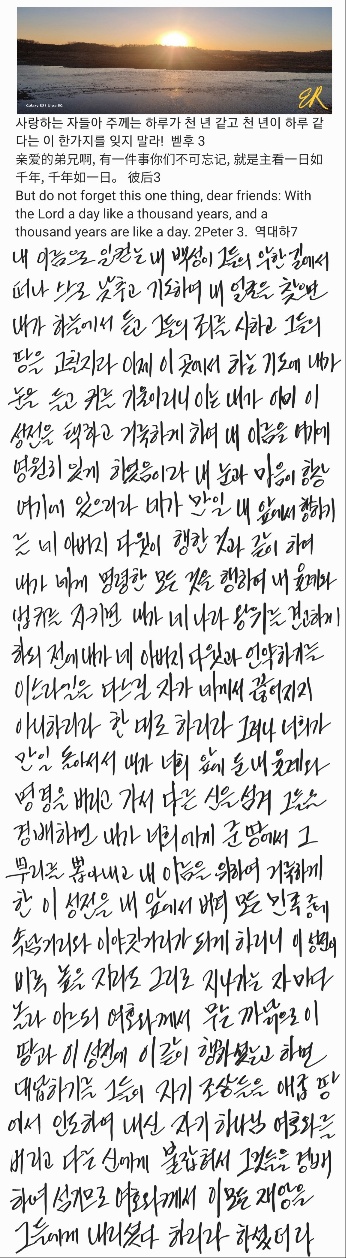 Galaxy S21 Ultra 5G
ER
사랑하는 자들아 주께는 하루가 천 년 같고 천 년이 하루 같
다는 이 한가지를 잊지 말라! 벧후 3
亲爱的弟兄啊, 有一件事你们不可忘记, 就是主看一日如
千年, 千年如一日。 彼后3
But do not forget this one thing, dear friends: With
the Lord a day like a thousand years, and a
thousand years are like a day. 2Peter 3. 역대하7
내 이름으로 일컫는 내 백성이 그들의 악한 길에서
떠나 스스로 낮추고 기도하여 내 얼굴을 찾으면
내가 하늘에서 듣고 그들의 죄를 사하고 그들의
땅을 고칠지라 이제 이 곳에서 하는 기도에 내가
눈을 들고 귀를 기울이리니 이는 내가 이미 이
성전을 택하고 거룩하게 하여 내 이름을 여기에
영원히 있게 하였음이라 내 눈과 마음이 항상
여기에 있으리라 네가 만일 내 앞에서 행하기
를 네 아버지 다윗이 행한 것과 같이 하여
내가 네게 명령한 모든 것을 행하여 내 율례와
법규를 지키면 내가 네 나라 왕위를 견고하게
하되 전에 내가 네 아버지 다윗과 언약하기를
이스라엘을 다스릴 자가 네게서 끊어지지
아니하리라 한 대로 하리라 그러나 너희가
만일 돌아서서 내가 너희 앞에 둔 내 율례와
명령을 버리고 가서 다른 신을 섬겨 그들을
경배하면 내가 너희에게 준 땅에서 그
뿌리를 뽑아내고 내 이름을 위하여 거룩하게
한 이 성전을 내 앞에서 버려 모든 민족 중에
속담거리와 이야깃거리가 되게 하리니 이 성전이
비록 높을지라도 그리로 지나가는 자마다
놀라 이르되 여호와께서 무슨 까닭으로 이
땅과 이 성전에 이같이 행하셨는고 하면
대답하기를 그들이 자기 조상들을 애굽 땅
에서 인도하여 내신 자기 하나님 여호와를
버리고 다른 신에게 붙잡혀서 그것들을 경배
하여 섬기므로 여호와께서 이 모든 재앙을
그들에게 내리셨다 하리라 하셨더라